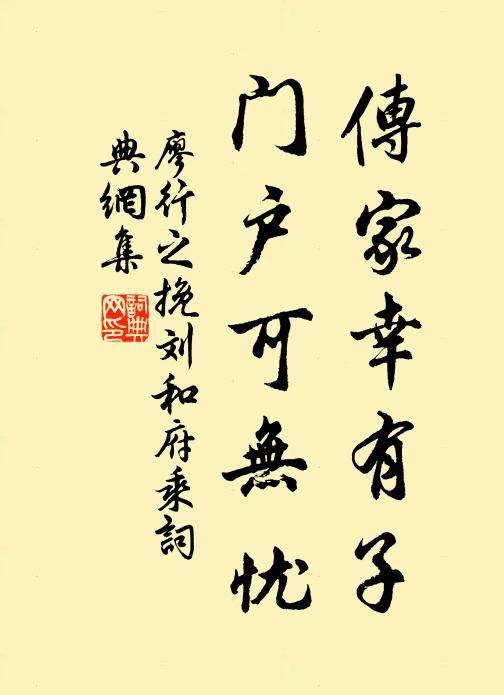 傳家幸有子
门户可無忧
廖行之挽刘和府乘詞
典網集
詞典
网印